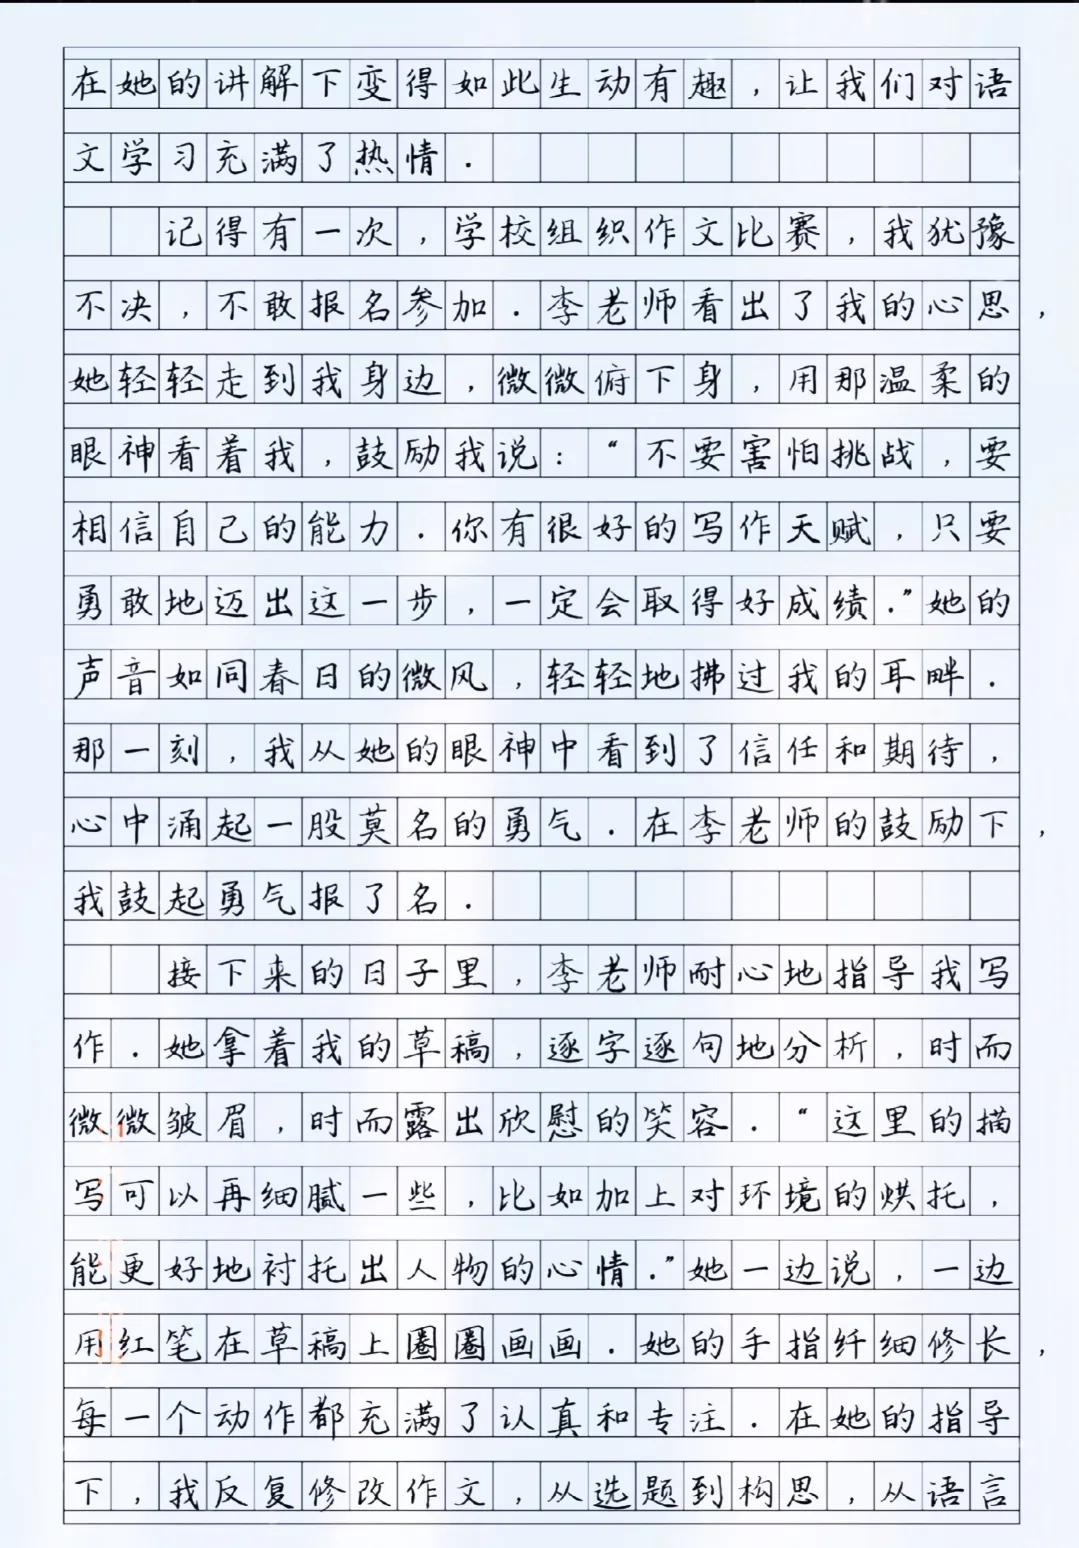 在她的讲解下变得如此生动有趣，让我们对语
文学习充满了热情.
记得有一次，学校组织作文比赛，我犹豫
不决，不敢报名参加.李老师看出了我的心思，
她轻轻走到我身边，微微俯下身，用那温柔的
眼神看着我，鼓励我说：“不要害怕挑战，要
相信自己的能力.你有很好的写作天赋，只要
勇敢地迈出这一步，一定会取得好成绩.”她的
声音如同春日的微风，轻轻地拂过我的耳畔.
那一刻，我从她的眼神中看到了信任和期待，
心中涌起一股莫名的勇气.在李老师的鼓励下，
我鼓起勇气报了名.
接下来的日子里，李老师耐心地指导我写
作.她拿着我的草稿，逐字逐句地分析，时而
微微皱眉，时而露出欣慰的笑容.“这里的描
写可以再细腻一些，比如加上对环境的烘托，
能更好地衬托出人物的心情.”她一边说，一边
用红笔在草稿上圈圈画画.她的手指纤细修长，
每一个动作都充满了认真和专注.在她的指导
下，我反复修改作文，从选题到构思，从语言